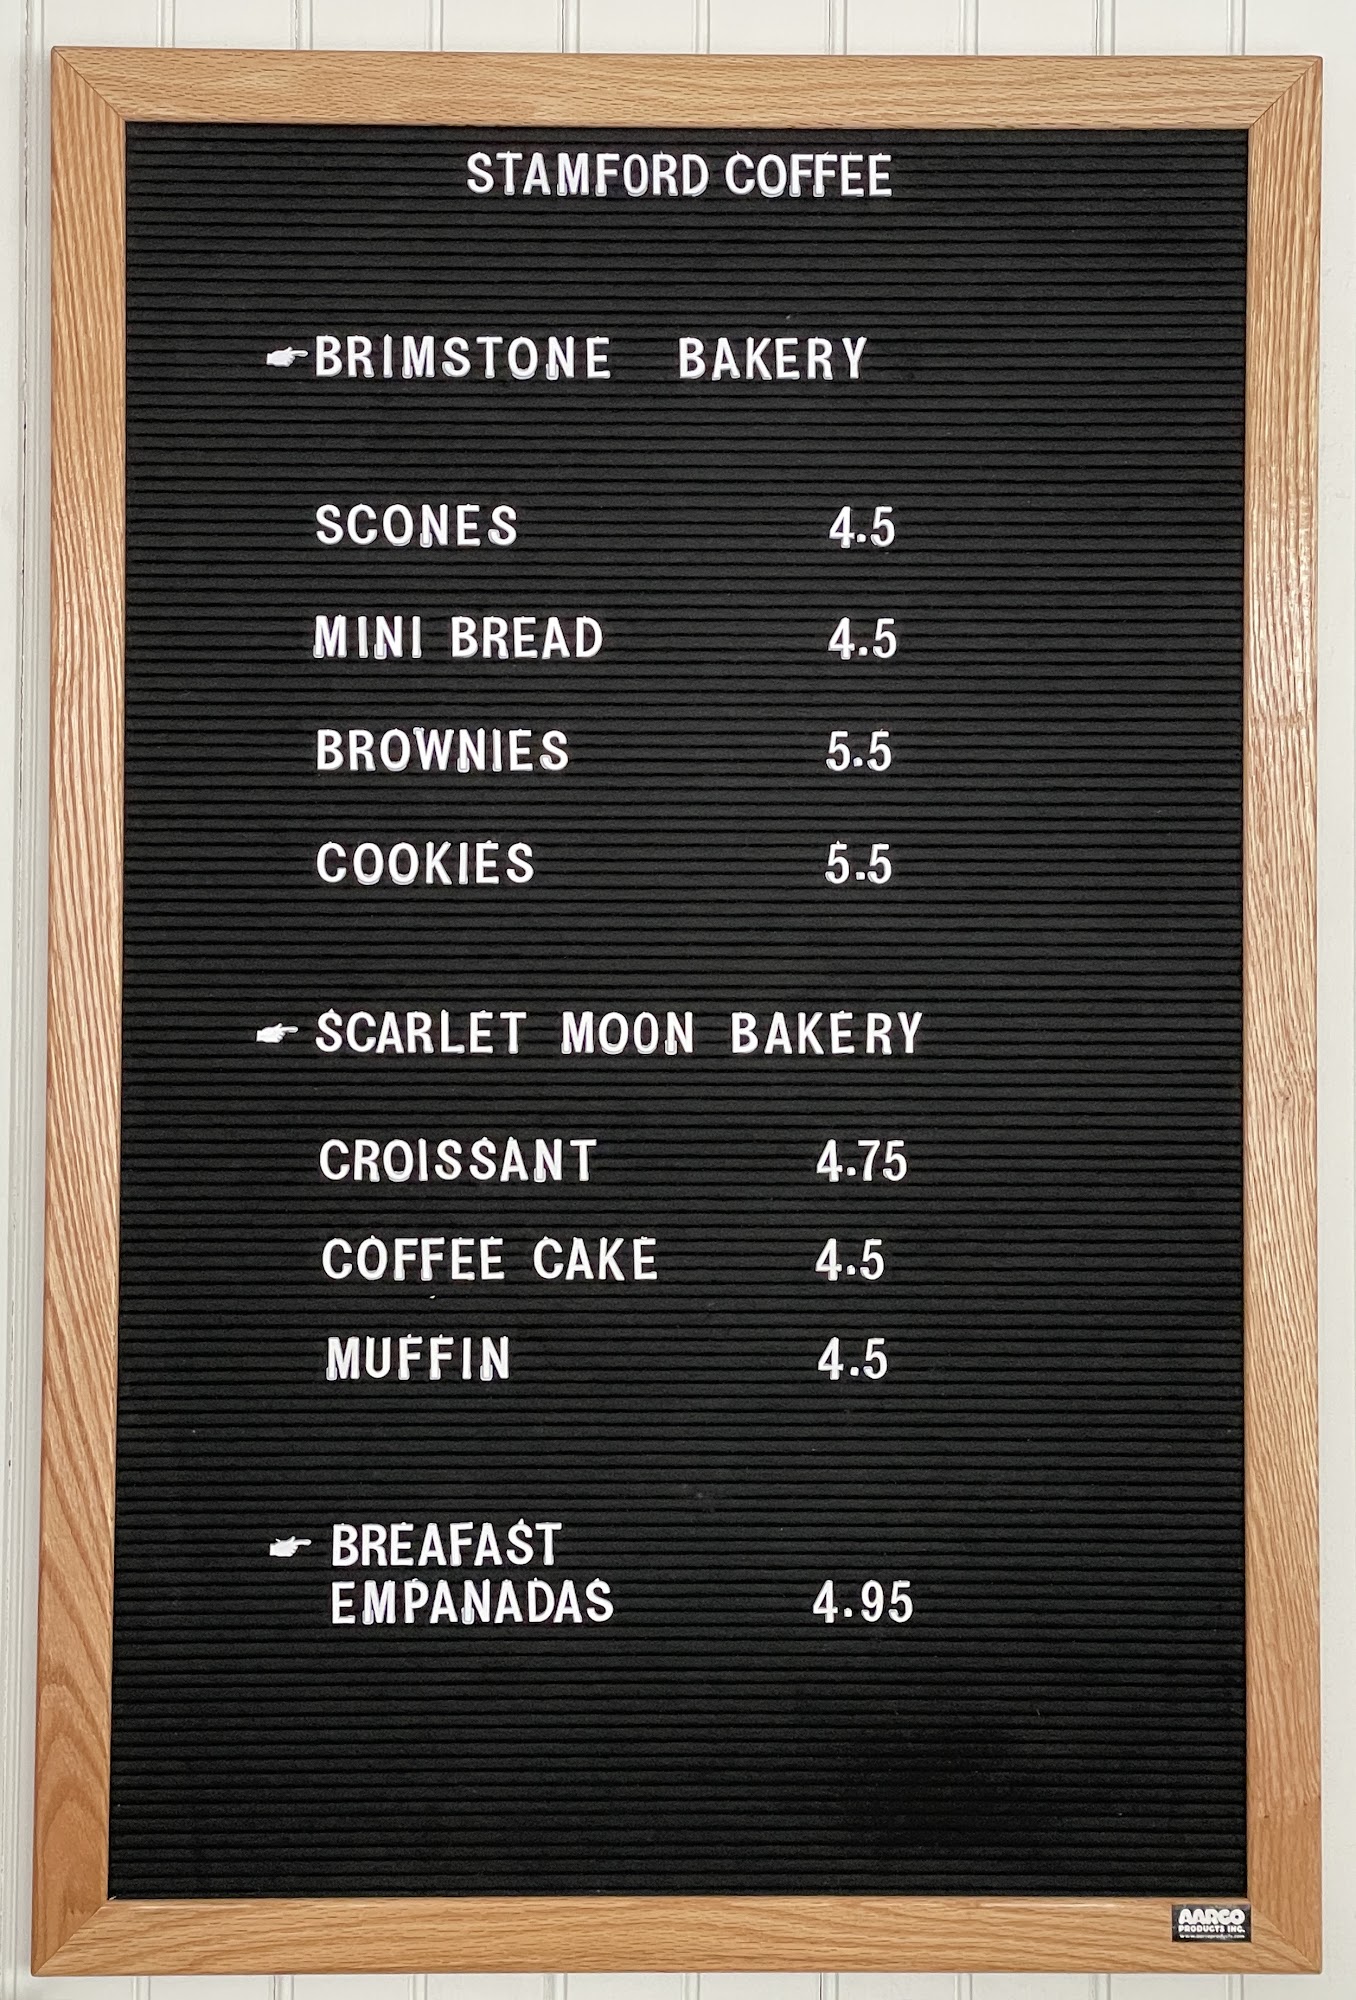 STAMFORD COFFEE
BRIMSTONE BAKERY
SCONES 4.5
MINI BREAD 4.5
BROWNIES 5.5
COOKIES 5.5
SCARLET MOON BAKERY
CROISSANT 4.75
COFFEE CAKE 4.5
MUFFIN 4.5
BREAFAST
EMPANADAS 4.95
AARCO
PRODUCTS INC.
www.aarcoproducts.com